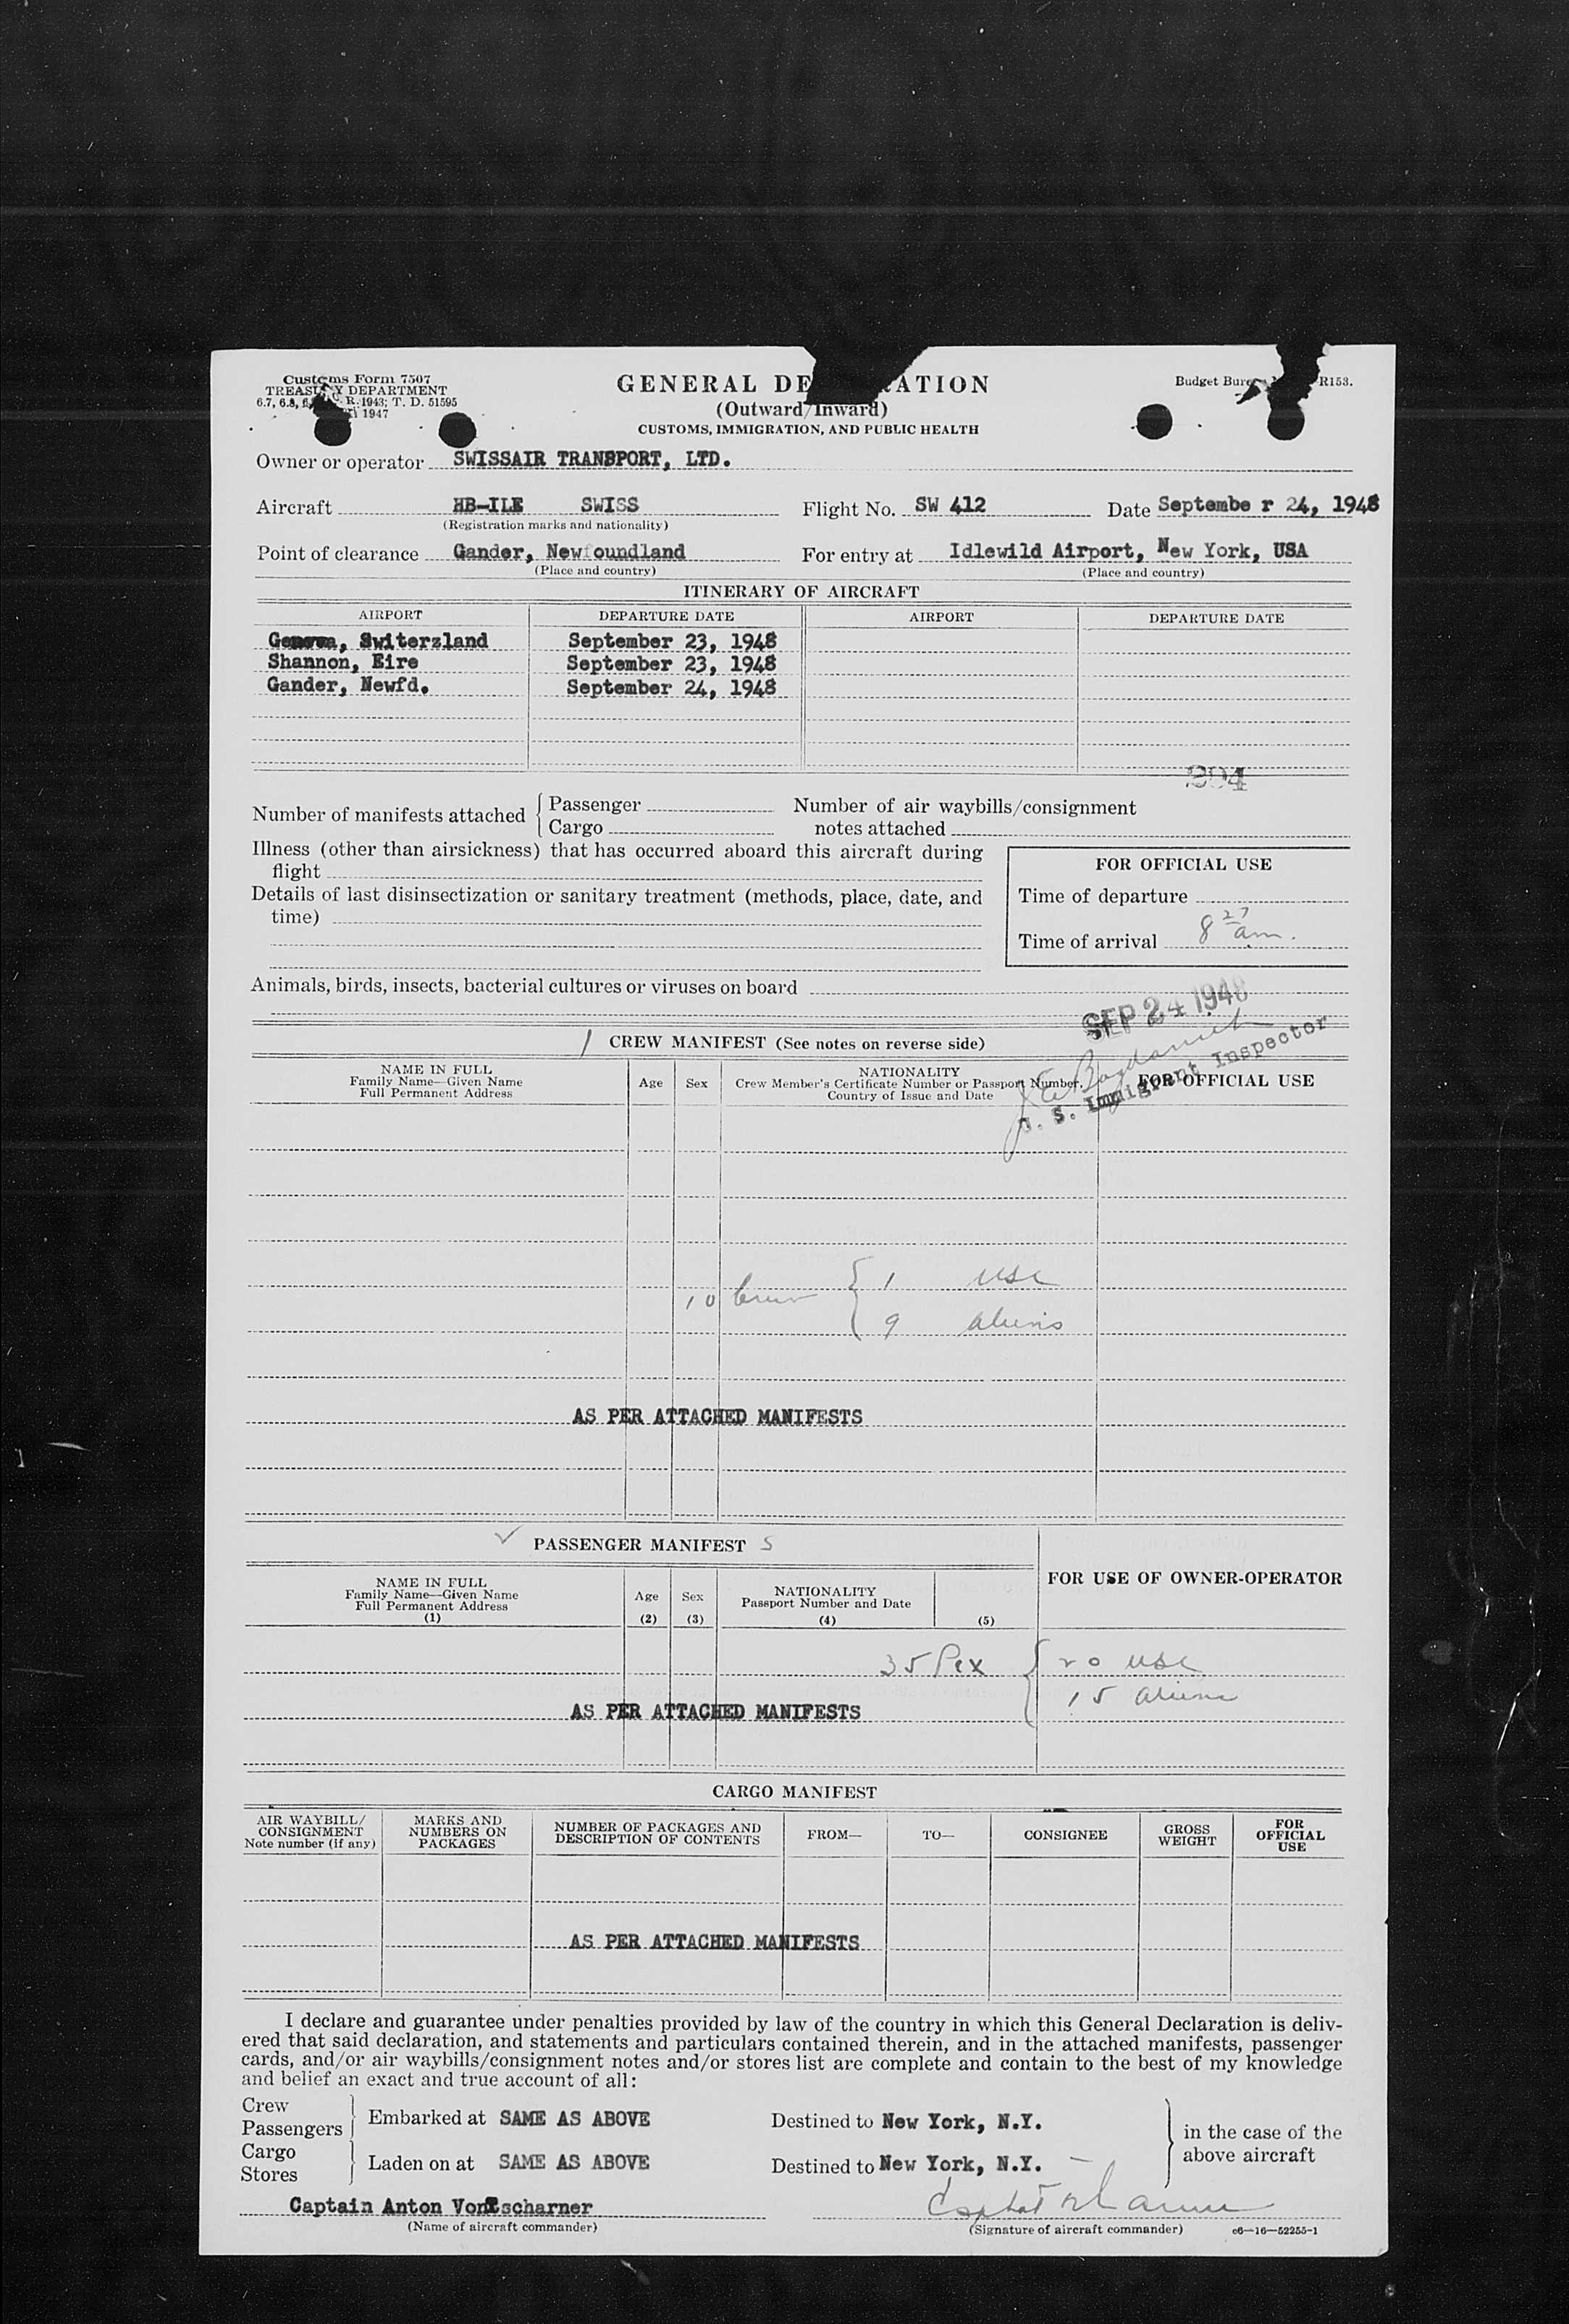 Customs Form 7507
TREASURY DEPARTMENT
6.7, 6.8, R. 1943; T. D. 51595
1947
GENERAL DE RATION
(Outward/Inward)
CUSTOMS, IMMIGRATION, AND PUBLIC HEALTH
Budget Bure R153.
Owner or operator SWISSAIR TRANSPORT, LTD.
Aircraft HB-ILE SWISS Flight No. SW 412 Date Septembe r 24, 1948
(Registration marks and nationality)
Point of clearance Gander, Newfoundland For entry at Idlewild Airport, New York, USA
(Place and country) (Place and country)
ITINERARY OF AIRCRAFT
AIRPORT DEPARTURE DATE AIRPORT DEPARTURE DATE
Geneva, Switerzland September 23, 1948
Shannon, Eire September 23, 1948
Gander, Newfd. September 24, 1948
294
Number of manifests attached { Passenger Number of air waybills/consignment
Cargo notes attached
Illness (other than airsickness) that has occurred aboard this aircraft during
flight
Details of last disinsectization or sanitary treatment (methods, place, date, and
time)
FOR OFFICIAL USE
Time of departure
Time of arrival 8 27 am.
Animals, birds, insects, bacterial cultures or viruses on board
SEP 24 1948
U. S. Immigrant Inspector
1 CREW MANIFEST (See notes on reverse side)
NAME IN FULL
Family Name—Given Name
Full Permanent Address
Age Sex
NATIONALITY
Crew Member's Certificate Number or Passport Number,
Country of Issue and Date
FOR OFFICIAL USE
10 Crew { 1 USC
9 aliens
AS PER ATTACHED MANIFESTS
✓ PASSENGER MANIFEST 5
NAME IN FULL
Family Name—Given Name
Full Permanent Address
(1)
Age
(2)
Sex
(3)
NATIONALITY
Passport Number and Date
(4)
(5)
FOR USE OF OWNER-OPERATOR
35 Pex { 20 USC
15 aliens
AS PER ATTACHED MANIFESTS
CARGO MANIFEST
AIR WAYBILL/
CONSIGNMENT
Note number (if any)
MARKS AND
NUMBERS ON
PACKAGES
NUMBER OF PACKAGES AND
DESCRIPTION OF CONTENTS
FROM—
TO—
CONSIGNEE
GROSS
WEIGHT
FOR
OFFICIAL
USE
AS PER ATTACHED MANIFESTS
I declare and guarantee under penalties provided by law of the country in which this General Declaration is deliv-
ered that said declaration, and statements and particulars contained therein, and in the attached manifests, passenger
cards, and/or air waybills/consignment notes and/or stores list are complete and contain to the best of my knowledge
and belief an exact and true account of all:
Crew
Passengers } Embarked at SAME AS ABOVE Destined to New York, N.Y.
Cargo
Stores } Laden on at SAME AS ABOVE Destined to New York, N.Y.
} in the case of the
above aircraft
Captain Anton VonTscharner
(Name of aircraft commander) (Signature of aircraft commander) c6—16—52255-1